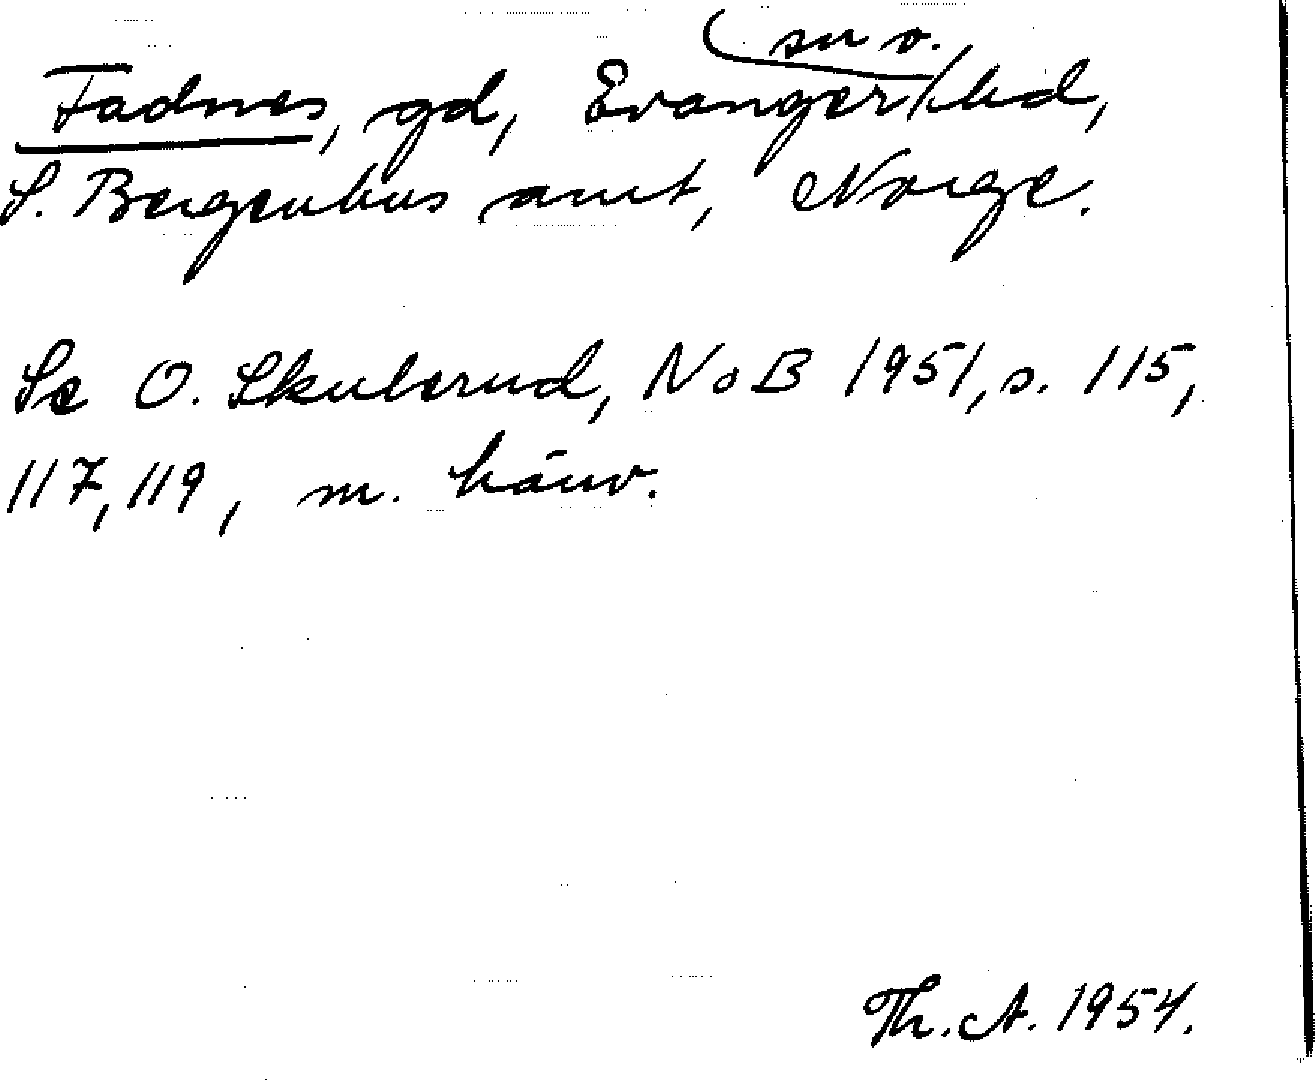 Fadnes, gd, Evanger sn o. hd,
S. Bergenhus amt, Norge.
Se O. Skulerud, NoB 1951, s. 115,
117, 119, m. hänv.
Th. A. 1954.